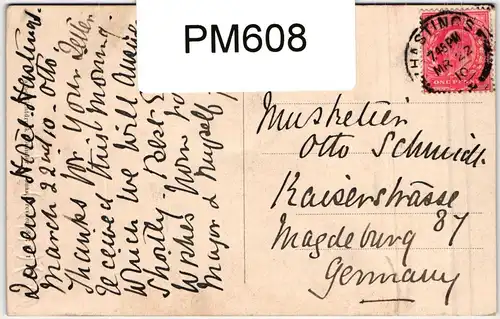 PM608
HASTINGS
7.45 PM
MR 22
ONE PENNY
Queens Hotel Hastings
March 22nd 10 - Otto,
Thanks for your letter
received this morning.
which we will answer
shortly - Best
wishes from
Major & Myself
Musketier
Otto Schmidt.
Kaiserstrasse
87
Magdeburg
Germany